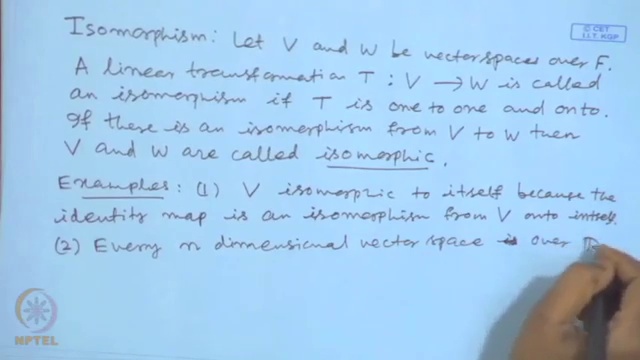 © CET
I.I.T. KGP
Isomorphism: Let V and W be vector spaces over F.
A linear transformation T : V → W is called
an isomorphism if T is one to one and onto.
If there is an isomorphism from V to W then
V and W are called isomorphic.
Examples: (1) V isomorphic to itself because the
identity map is an isomorphism from V onto itself.
(2) Every n dimensional vector space over
NPTEL